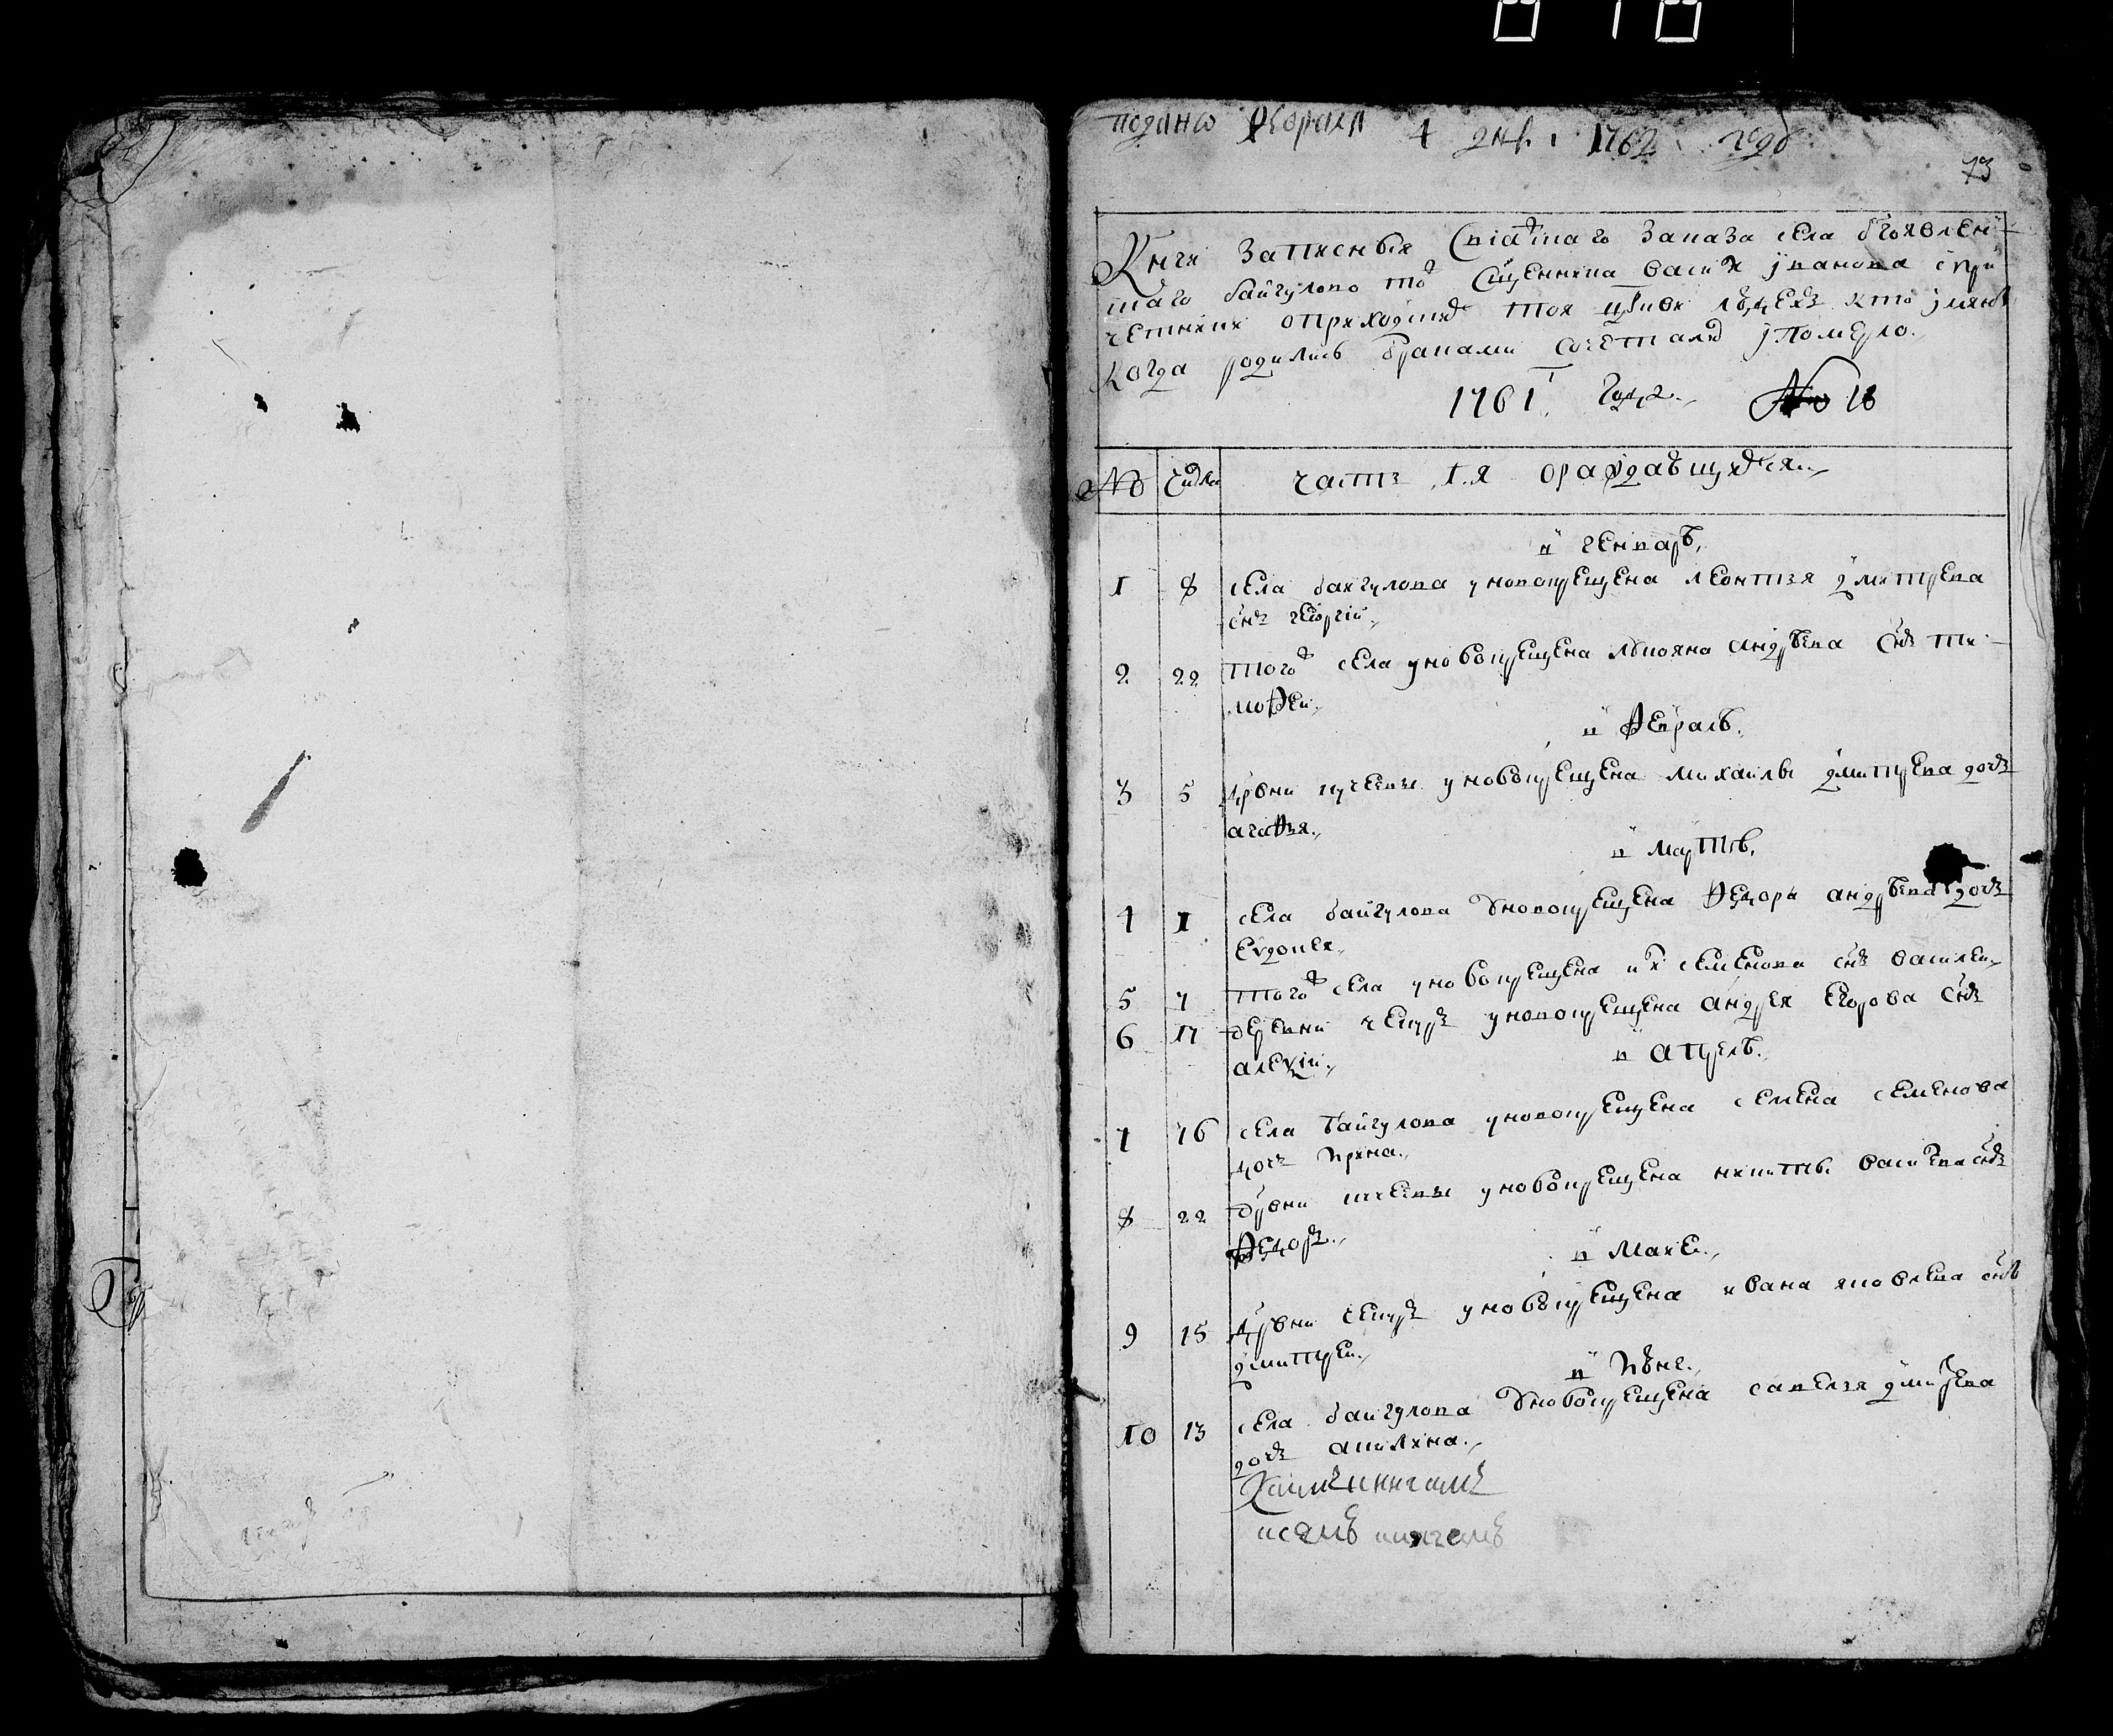 подано февраля 4 дня 1762 году
73
Книги записныя заказа села бгоявлен-
наго байгулово тоже сщенника васил иванова с при
четники о приходких тоя цркви людех кто имяны
когда родились браками сочеталис и померло.
1761 года. № 18
№ числа часть 1.я о раждающихся
в генварѣ.
1 8 села байгулова у новокрещена леонтья дмитрева
снъ георгий
2 22 тогож села у новокрещена лукояна андрѣева снъ ти-
мофей
в феврале.
3 5 дрвни у новокрещена михаилы дмитрева дочь
агафья
в мартѣ.
4 1 села байгулова у новокрещена федора андрѣева дочь
евдокея
5 7 тогож села у новокрещена семенова снъ василей
6 17 деревни у новокрещена андрея егорова снъ
алеѯiй
в апрелѣ.
7 16 села байгулова у новокрещена семена семенова
дочь ирина
8 22 дрвни у новокрещена никиты васильева снъ
федоръ
в мае
9 15 дрвни у новокрещена ивана яковлева снъ
дмитрей
в июне
10 13 села байгулова у новокрещена савелья дмитрева
дочь акилина